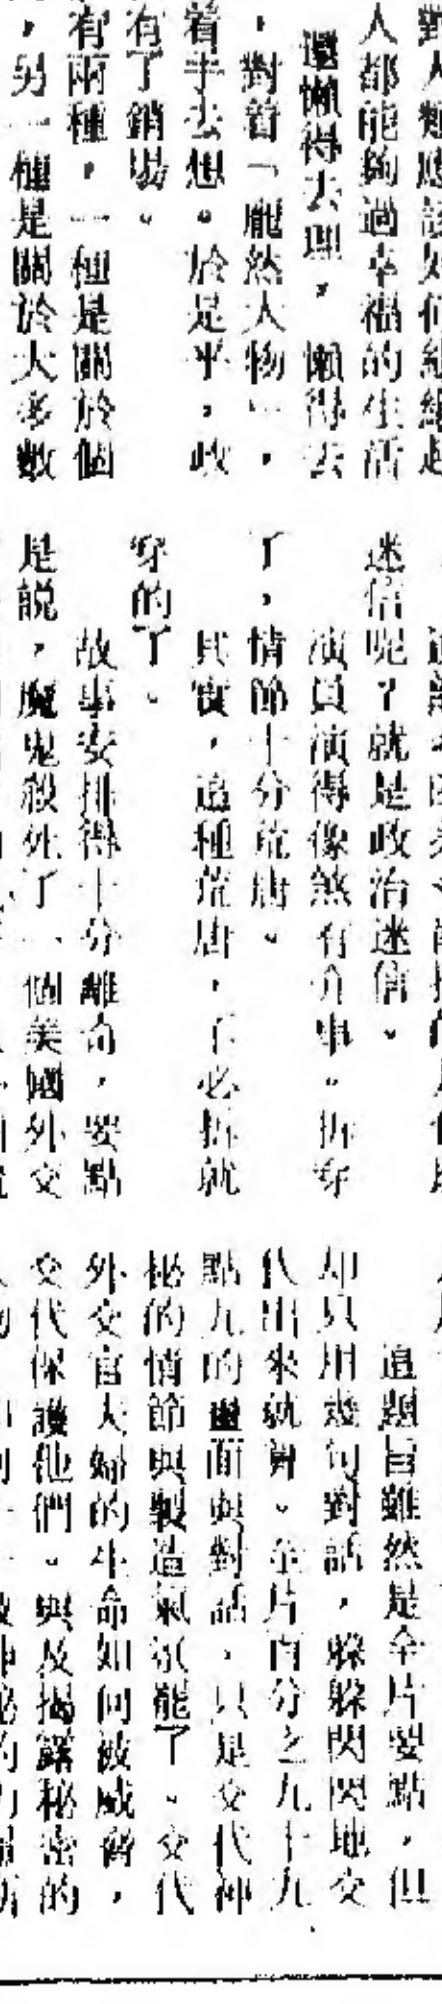 對人類應該如何組織起
人都能夠過幸福的生活
還懶得去理,懶得去
,對着「龐然大物」,
着手去想。於是乎,政
有了銷場。
有兩種,一種是關於個
,另一種是關於大多數
迷信呢?就是政治迷信。
演員演得像煞有介事。拆穿
了,情節十分荒唐。
其實,這種荒唐,不必拆就
穿的了。
故事安排得十分離奇,要點
是說,魔鬼殺死了一個美國外交
這題旨雖然是全片要點,但
却只用幾句對話,躲躲閃閃地交
代出來就算。全片百分之九十九
點九的畫面與對話,只是交代神
秘的情節與製造氣氛罷了。交代
外交官夫婦的生命如何被威脅,
交代保護他們。與及揭露秘密的